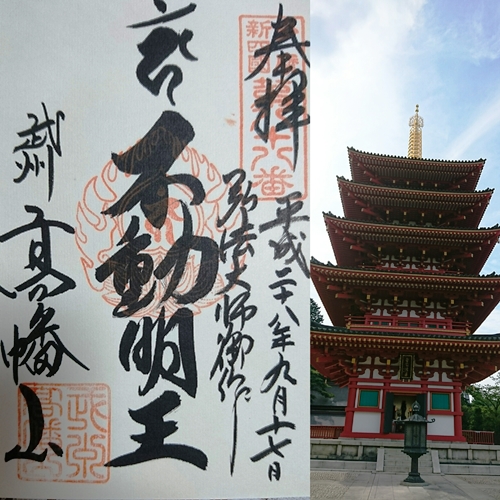 奉拝
新四国
十八番
平成二十八年九月十七日
弘法大師御作
不動明王
武州
高幡山